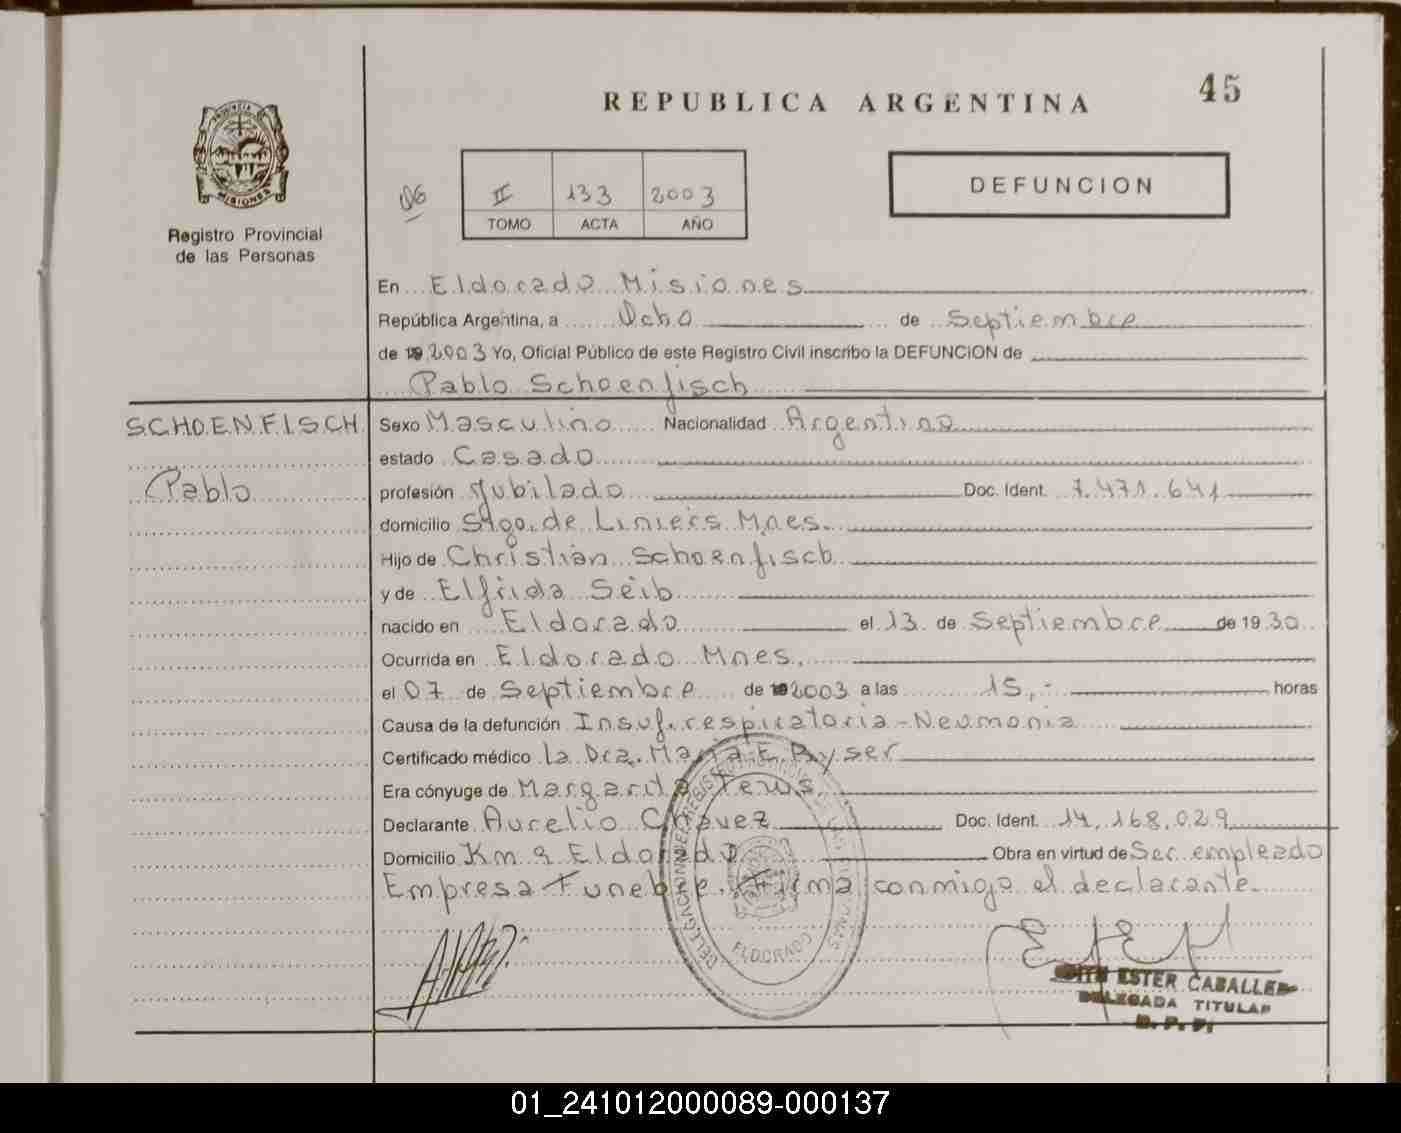 REPUBLICA ARGENTINA
45
PROVINCIA DE
MISIONES
Registro Provincial
de las Personas
II 133 2003
TOMO ACTA AÑO
DEFUNCION
En Eldorado Misiones
República Argentina, a Ocho de Septiembre
de 2003 Yo, Oficial Público de este Registro Civil inscribo la DEFUNCION de
Pablo Schoenfisch
SCHOENFISCH
Pablo
Sexo Masculino Nacionalidad Argentina
estado Casado
profesión Jubilado Doc. Ident. 7.471.641
domicilio Stgo. de Liniers Mnes.
Hijo de Christian Schoenfisch
y de Elfrida Seib
nacido en Eldorado el 13 de Septiembre de 1930
Ocurrida en Eldorado Mnes,
el 07 de Septiembre de 2003 a las 15,- horas
Causa de la defunción Insuf. respiratoria - Neumonia
Certificado médico la Dra. Maria E. Ryser
Era cónyuge de Margarita
Declarante Aurelio Chavez Doc. Ident. 14.168.029
Domicilio Km 9 Eldorado Obra en virtud de Ser empleado
Empresa Funebre. Firma conmigo el declarante
ELDORADO
ESTER CABALLE
DELEGADA TITULAR
01_241012000089-000137